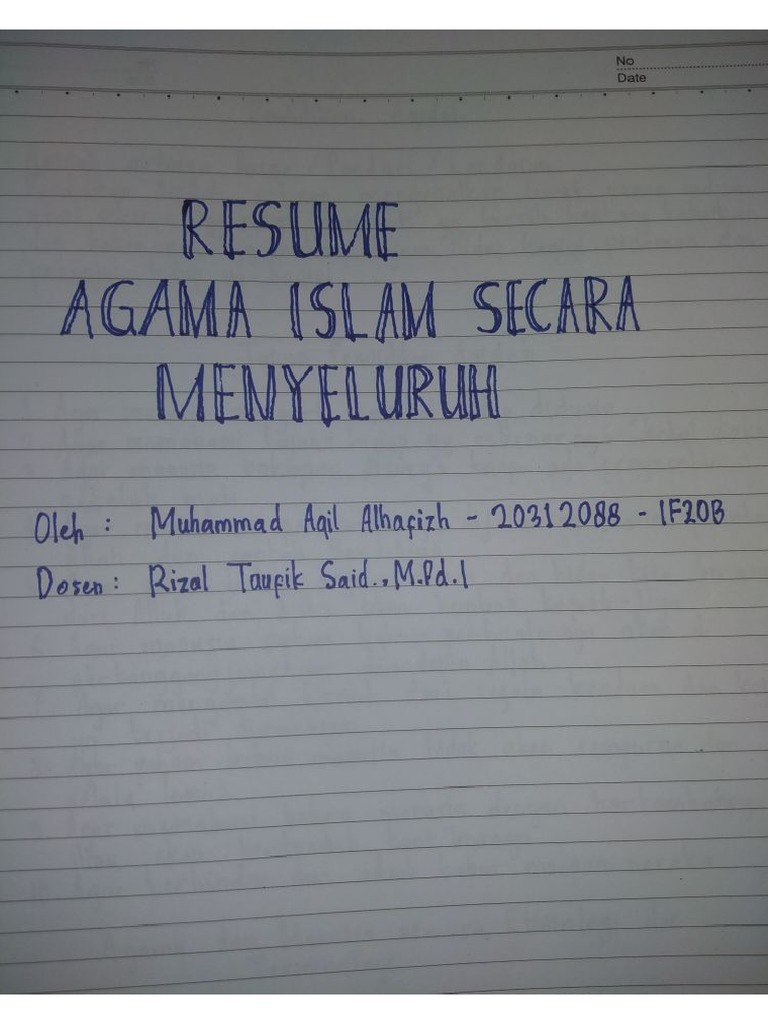 No
Date
RESUME
AGAMA ISLAM SECARA
MENYELURUH
Oleh : Muhammad Aqil Alhafizh - 20312088 - IF20B
Dosen : Rizal Taufik Said., M.Pd.I